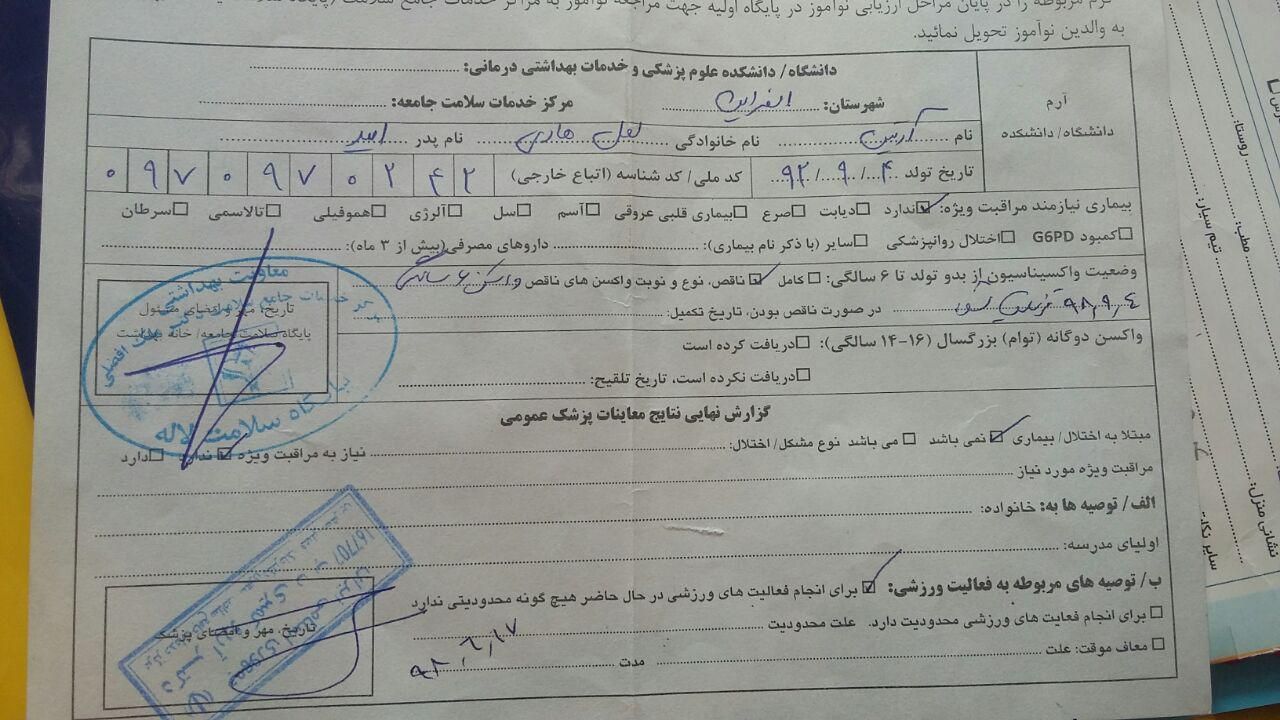 فرم مربوطه را در پایان مراحل ارزیابی نوآموز در پایگاه اولیه جهت مراجعه نوآموز به مراکز خدمات جامع سلامت (پایگاه سلامت
به والدین نوآموز تحویل نمائید.
آرم
دانشگاه/ دانشکده
دانشگاه/ دانشکده علوم پزشکی و خدمات بهداشتی درمانی:
شهرستان: اسفراین مرکز خدمات سلامت جامعه:
نام آرتین نام خانوادگی نام پدر امید
تاریخ تولد ۹۲/۹/۴ کد ملی/ کد شناسه (اتباع خارجی) ۰ ۹ ۷ ۰ ۹ ۷ ۰ ۲ ۴ ۲
بیماری نیازمند مراقبت ویژه: ندارد دیابت صرع بیماری قلبی عروقی آسم سل آلرژی هموفیلی تالاسمی سرطان
کمبود G6PD اختلال روانپزشکی سایر (با ذکر نام بیماری): داروهای مصرفی(بیش از ۳ ماه):
وضعیت واکسیناسیون از بدو تولد تا ۶ سالگی: کامل ناقص، نوع و نوبت واکسن های ناقص واکسن ۶ سالگی
در صورت ناقص بودن، تاریخ تکمیل: ۹۸,۹,۴
واکسن دوگانه (توام) بزرگسال (۱۶-۱۴ سالگی): دریافت کرده است
دریافت نکرده است، تاریخ تلقیح:
تاریخ، مهر و امضای مسئول
پایگاه سلامت جامعه/ خانه بهداشت
معاونت بهداشتی
پایگاه سلامت لاله
گزارش نهایی نتایج معاینات پزشک عمومی
مبتلا به اختلال/ بیماری نمی باشد می باشد نوع مشکل/ اختلال: نیاز به مراقبت ویژه ندارد دارد
مراقبت ویژه مورد نیاز
الف/ توصیه ها به: خانواده:
اولیای مدرسه:
ب/ توصیه های مربوطه به فعالیت ورزشی: برای انجام فعالیت های ورزشی در حال حاضر هیچ گونه محدودیتی ندارد
برای انجام فعایلت های ورزشی محدودیت دارد. علت محدودیت
معاف موقت: علت مدت
تاریخ، مهر و امضای پزشک
روستا:
مطب:
تیم سیار:
نشانی منزل: